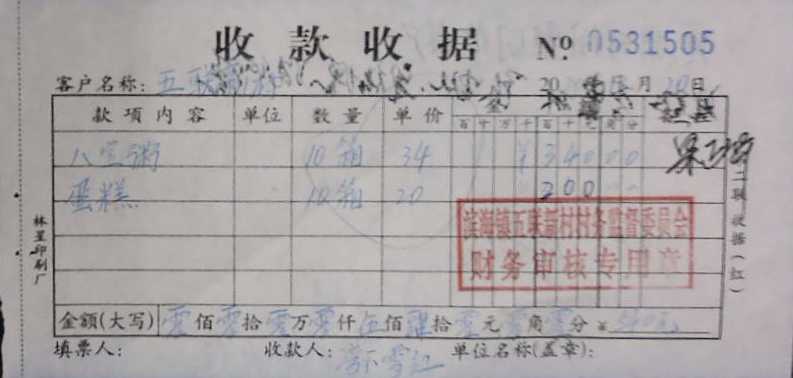 收款收据 No 0531505
客户名称: 五联新村 20 年 月 20日
款项内容 单位 数量 单价 百十万千百十元角分
八宝粥 10箱 34 ¥34000
蛋糕 10箱 20 200
滨海镇五联新村村务监督委员会
财务审核专用章
二联收据(红)
林星印刷厂
金额(大写) 零佰零拾零万零仟伍佰肆拾零元零角零分 ¥540元
填票人: 收款人: 单位名称(盖章):